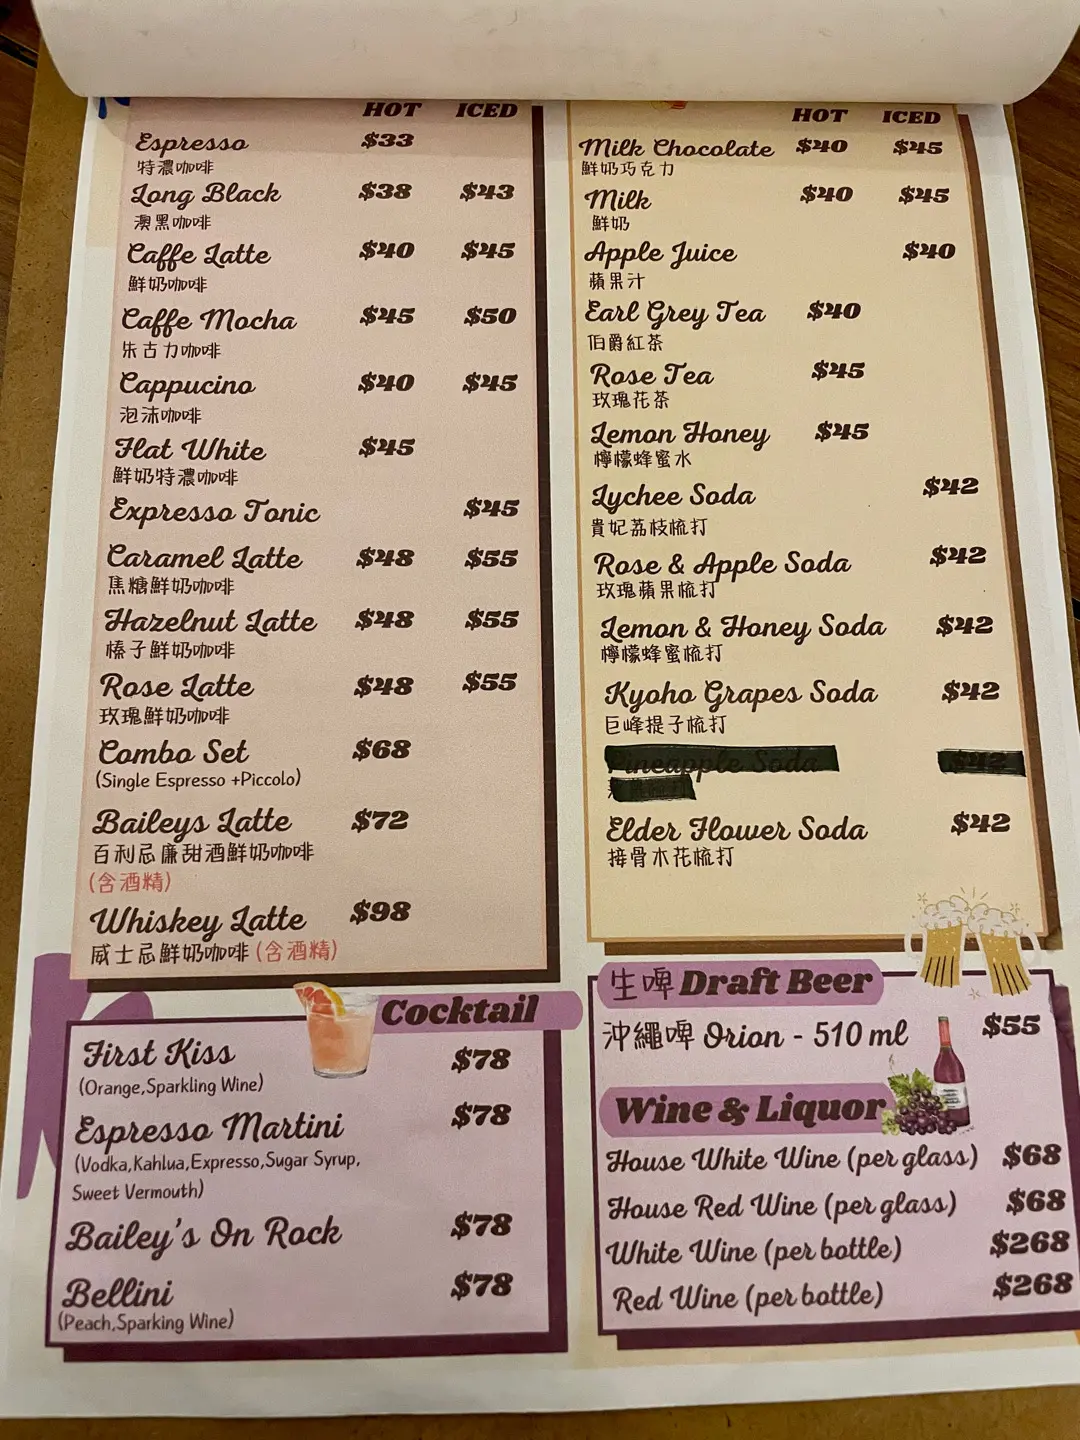 HOT ICED
Espresso $33
特濃咖啡
Long Black $38 $43
澳黑咖啡
Caffe Latte $40 $45
鮮奶咖啡
Caffe Mocha $45 $50
朱古力咖啡
Cappucino $40 $45
泡沫咖啡
Flat White $45
鮮奶特濃咖啡
Expresso Tonic $45
Caramel Latte $48 $55
焦糖鮮奶咖啡
Hazelnut Latte $48 $55
榛子鮮奶咖啡
Rose Latte $48 $55
玫瑰鮮奶咖啡
Combo Set $68
(Single Espresso +Piccolo)
Baileys Latte $72
百利忌廉甜酒鮮奶咖啡
(含酒精)
Whiskey Latte $98
威士忌鮮奶咖啡 (含酒精)
HOT ICED
Milk Chocolate $40 $45
鮮奶巧克力
Milk $40 $45
鮮奶
Apple Juice $40
蘋果汁
Earl Grey Tea $40
伯爵紅茶
Rose Tea $45
玫瑰花茶
Lemon Honey $45
檸檬蜂蜜水
Lychee Soda $42
貴妃荔枝梳打
Rose & Apple Soda $42
玫瑰蘋果梳打
Lemon & Honey Soda $42
檸檬蜂蜜梳打
Kyoho Grapes Soda $42
巨峰提子梳打
Pineapple Soda $42
Elder Flower Soda $42
接骨木花梳打
Cocktail
First Kiss $78
(Orange,Sparkling Wine)
Espresso Martini $78
(Vodka,Kahlua,Expresso,Sugar Syrup,
Sweet Vermouth)
Bailey's On Rock $78
Bellini $78
(Peach,Sparking Wine)
生啤 Draft Beer
沖繩啤 Orion - 510 ml $55
Wine & Liquor
House White Wine (per glass) $68
House Red Wine (per glass) $68
White Wine (per bottle) $268
Red Wine (per bottle) $268